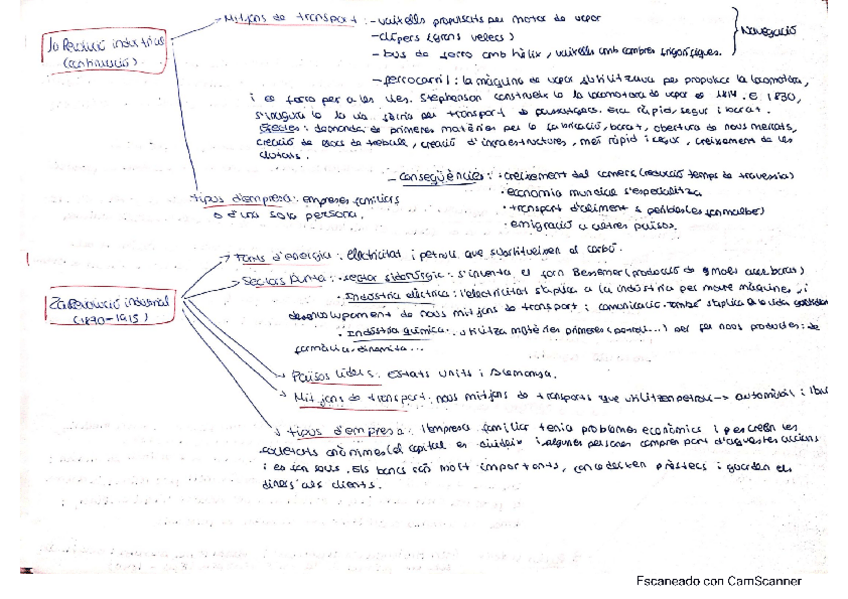 → Mitjans de transport : - vaixells propulsats per motor de vapor
- clípers (grans velers)
- bus de ferro amb hèlix, vaixells amb cambres frigorífiques.
Navegació
1a Revolució industrial
(continuació)
- ferrocarril : la màquina de vapor s'utilitzava per propulsar la locomotora,
i el ferro per a les vies. Stephenson construeix la 1a locomotora de vapor el 1814. El 1830,
s'inaugura la 1a via fèrria per transport de passatgers. Era ràpid, segur i barat.
Efectes : demanda de primeres matèries per la fabricació, barat, obertura de nous mercats,
creació de llocs de treball, creació d'infraestructures, més ràpid i segur, creixement de les
ciutats.
- Conseqüències : · creixement del comerç (reducció temps de travessia)
· economia mundial s'especialitza
· transport d'aliments peribles (es formatge)
· emigració a altres països.
tipus d'empresa : empreses familiars
o d'una sola persona.
→ Fonts d'energia : electricitat i petroli que substitueixen al carbó.
→ Sectors punta : · sector siderúrgic : s'inventa el forn Bessemer (producció de acer barat)
· Indústria elèctrica : l'electricitat s'aplica a la indústria per moure màquines, i
desenvolupament de nous mitjans de transport i comunicació. També s'aplica a la vida quotidiana
· Indústria química : utilitza matèries primeres (petroli...) per fer nous productes : de
farmàcia, dinamita...
2a Revolució industrial
(1870-1915)
→ Països líders : Estats Units i Alemanya.
→ Mitjans de transport : nous mitjans de transports que utilitzen petroli → automòbil i
→ tipus d'empresa : l'empresa familiar tenia problemes econòmics i es creen les
societats anònimes (el capital es divideix i algunes persones compren part d'aquestes accions
i es fan socis. Els bancs són molt importants, concedeixen préstecs i guarden els
diners als clients.
Escaneado con CamScanner